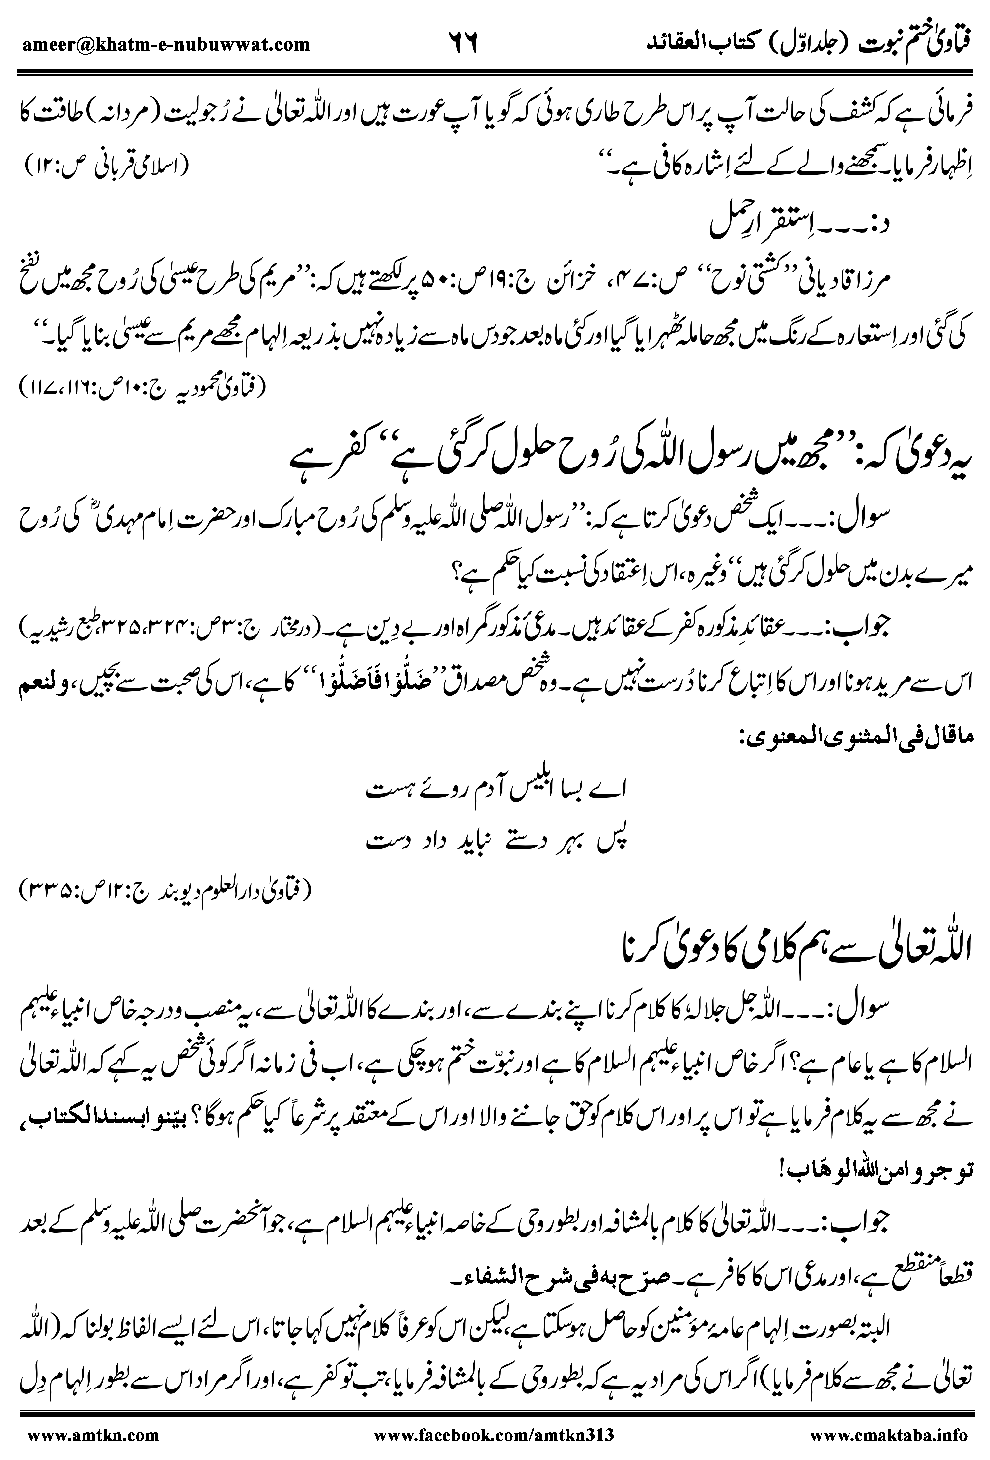 فتاویٰ ختم نبوت (جلد اوّل) کتاب العقائد ۶۶ ameer@khatm-e-nubuwwat.com
فرمائی ہے کہ کشف کی حالت آپ پر اس طرح طاری ہوئی کہ گویا آپ عورت ہیں اور اللہ تعالیٰ نے رُجولیت (مردانہ) طاقت کا
اِظہار فرمایا۔ سمجھنے والے کے لئے اِشارہ کافی ہے۔‘‘ (اسلامی قربانی ص:۱۲)
د:۔۔۔ اِستقرارِ حمل
مرزا قادیانی ’’کشتی نوح‘‘ ص:۴۷، خزائن ج:۱۹ص:۵۰ پر لکھتے ہیں کہ: ’’مریم کی طرح عیسیٰ کی رُوح مجھ میں نفخ
کی گئی اور اِستعارہ کے رنگ میں مجھ حاملہ ٹھہرایا گیا اور کئی ماہ بعد جو دس ماہ سے زیادہ نہیں بذریعہ اِلہام مجھے مریم سے عیسیٰ بنایا گیا۔‘‘
(فتاویٰ محمودیہ ج:۱۰ص:۱۱۶،۱۱۷)
یہ دعویٰ کہ: ’’مجھ میں رسول اللہ کی رُوح حلول کرگئی ہے‘‘ کفر ہے
سوال:۔۔۔ ایک شخص دعویٰ کرتا ہے کہ: ’’رسول اللہ صلی اللہ علیہ وسلم کی رُوح مبارک اور حضرت اِمام مہدیؓ کی رُوح
میرے بدن میں حلول کرگئی ہیں‘‘ وغیرہ، اس اِعتقاد کی نسبت کیا حکم ہے؟
جواب:۔۔۔ عقائدِ مذکورہ کفر کے عقائد ہیں۔ مدعیٔ مذکور گمراہ اور بے دِین ہے۔ (درمختار ج:۳ص:۳۲۴،۳۲۵، طبع رشیدیہ)
اس سے مرید ہونا اور اس کا اِتباع کرنا دُرست نہیں ہے۔ وہ شخص مصداق ’’ضَلُّوْا فَاَضَلُّوْا‘‘ کا ہے، اس کی صحبت سے بچیں، ولنعم
ماقال فی المثنوی المعنوی:
اے بسا ابلیس آدم روئے ہست
پس بہر دستے نباید داد دست
(فتاویٰ دارالعلوم دیوبند ج:۱۲ص:۳۳۵)
اللہ تعالیٰ سے ہم کلامی کا دعویٰ کرنا
سوال:۔۔۔ اللہ جل جلالہٗ کا کلام کرنا اپنے بندے سے، اور بندے کا اللہ تعالیٰ سے، یہ منصب و درجہ خاص انبیاء علیہم
السلام کا ہے یا عام ہے؟ اگر خاص انبیاء علیہم السلام کا ہے اور نبوّت ختم ہوچکی ہے، اب فی زمانہ اگر کوئی شخص یہ کہے کہ اللہ تعالیٰ
نے مجھ سے یہ کلام فرمایا ہے تو اس پر اور اس کلام کو حق جاننے والا اور اس کے معتقد پر شرعاً کیا حکم ہوگا؟ بیّنوا بسند الکتاب،
توجروا من اللہ الوھّاب!
جواب:۔۔۔ اللہ تعالیٰ کا کلام بالمشافہ اور بطور وحی کے خاصہ انبیاء علیہم السلام ہے، جو آنحضرت صلی اللہ علیہ وسلم کے بعد
قطعاً منقطع ہے، اور مدعی اس کا کافر ہے۔ صرّح بہ فی شرح الشفاء۔
البتہ بصورت اِلہام عامۂ مؤمنین کو حاصل ہوسکتا ہے، لیکن اس کو عرفاً کلام نہیں کہا جاتا، اس لئے ایسے الفاظ بولنا کہ (اللہ
تعالیٰ نے مجھ سے کلام فرمایا) اگر اس کی مراد یہ ہے کہ بطور وحی کے بالمشافہ فرمایا، تب تو کفر ہے، اور اگر مراد اس سے بطور اِلہام دِل
www.amtkn.com www.facebook.com/amtkn313 www.cmaktaba.info